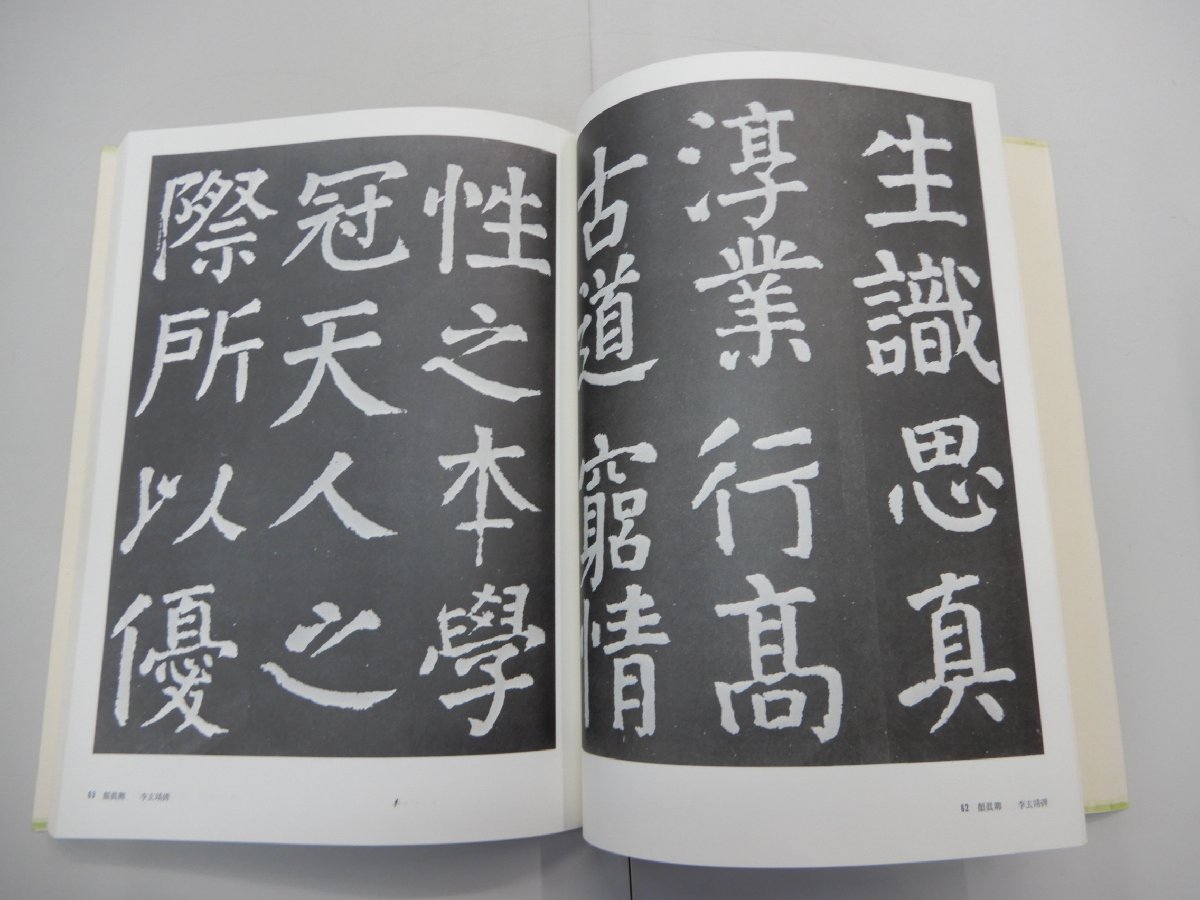 生識思真
淳業行髙
古道窮情
性之本學
冠天人之
際所以優
62 顏眞卿 李玄靖碑
65 顏眞卿 李玄靖碑